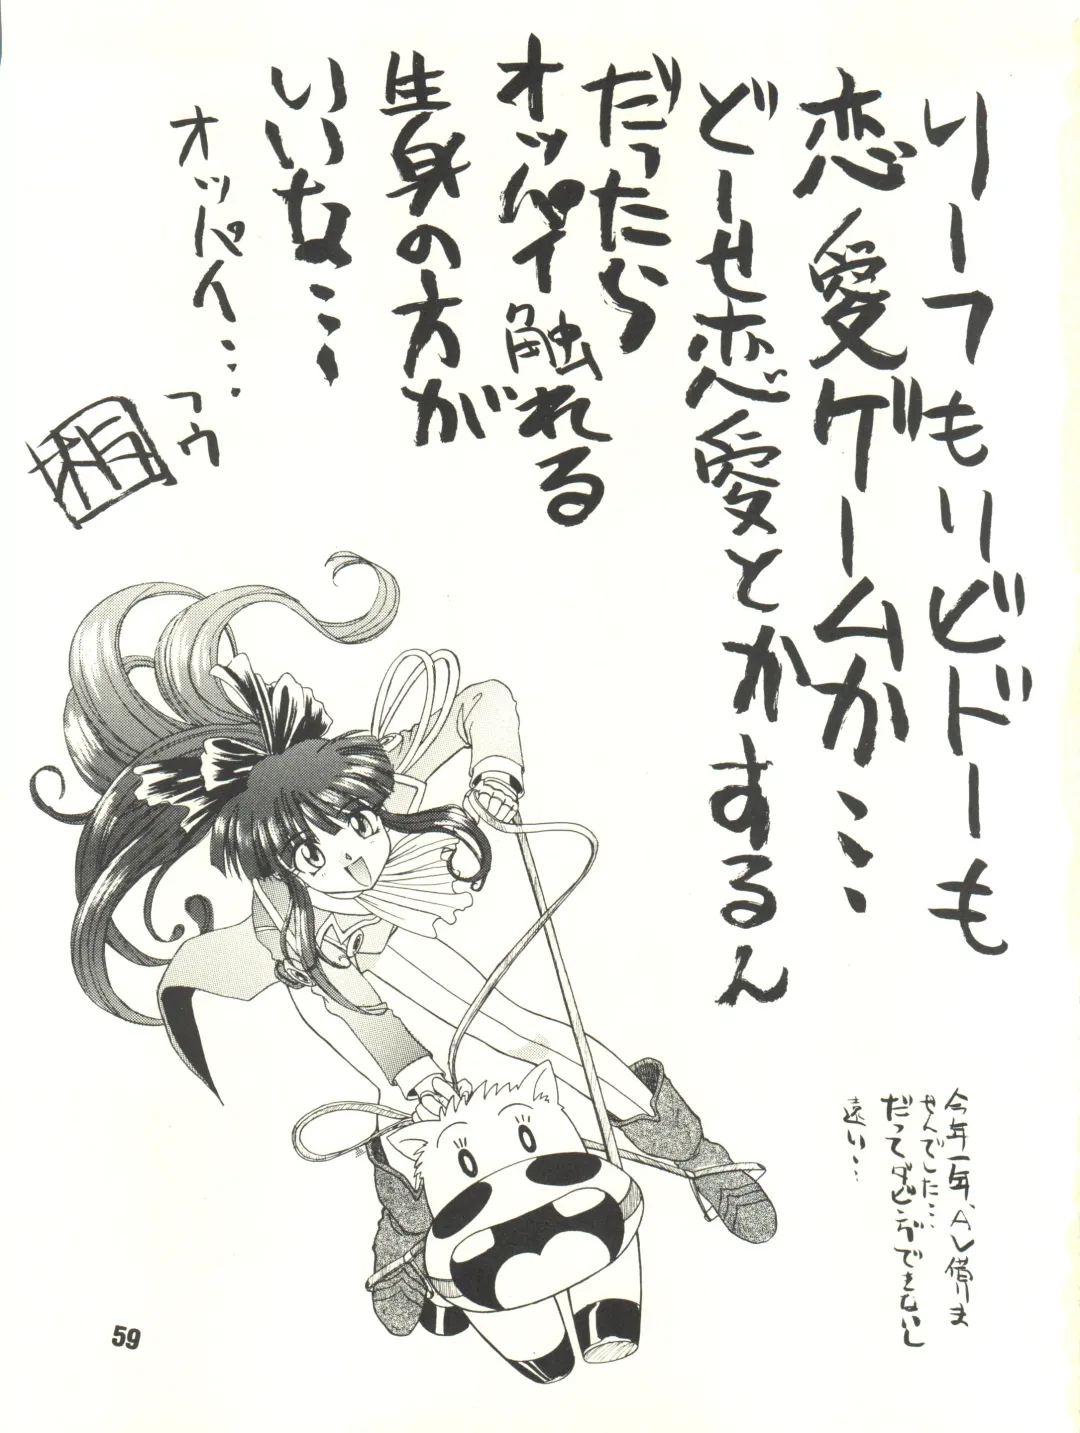 リーフもリビドーも
恋愛ゲームか…
どーせ恋愛とかするん
だったら
オッパイ触れる
生身の方が
いいな…
オッパイ…
フウ
今年一年、AV借りま
せんでした…
だってダビングできないし
遠い…
59